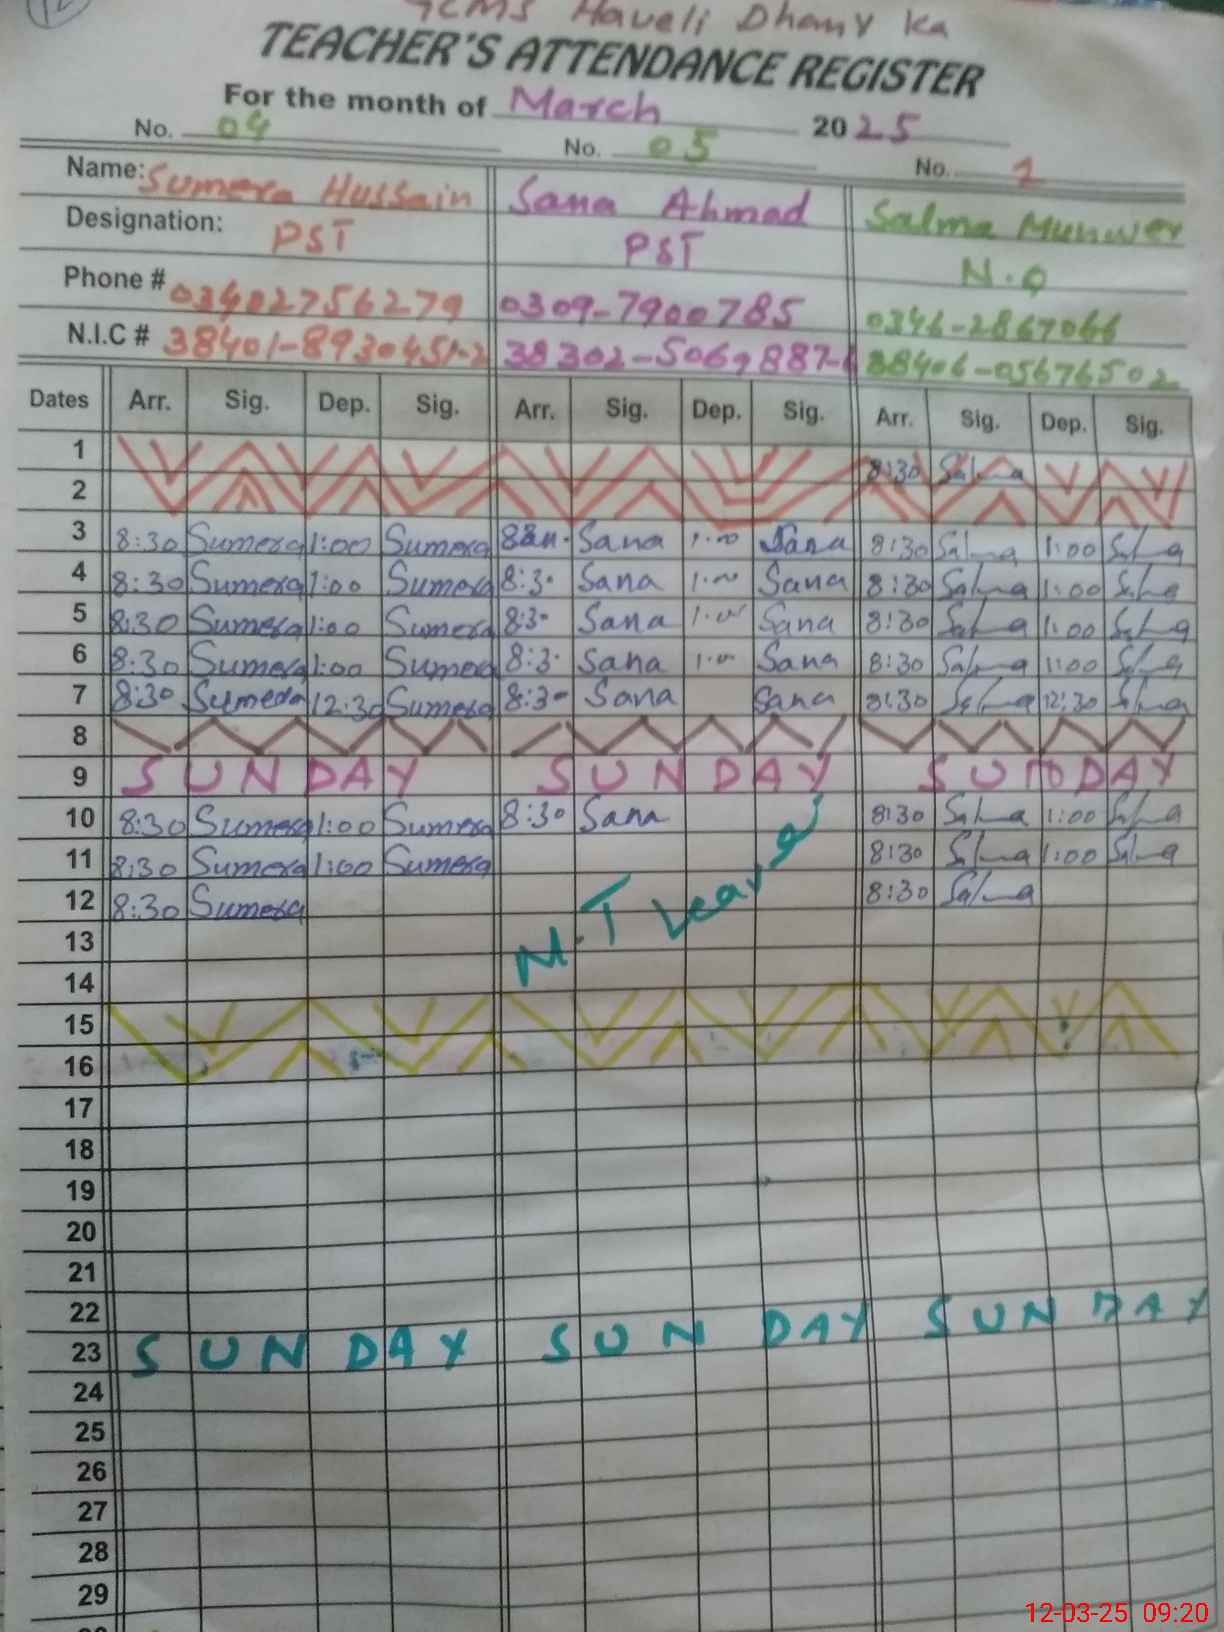 GCMS Haveli Dhamy Ka
TEACHER'S ATTENDANCE REGISTER
For the month of March 2025
No. 04 No. 05 No. 1
Name: Sumera Hussain Sana Ahmad Salma Munwer
Designation: PST PST N.Q
Phone # 03402756279 0309-7900785 0346-2867066
N.I.C # 38401-8930451-2 38302-5069887- 38406-05676502
Dates Arr. Sig. Dep. Sig. Arr. Sig. Dep. Sig. Arr. Sig. Dep. Sig.
1 8:30 Salma
2
3 8:30 Sumera 1:00 Sumera Sana 1:00 Sana 8:30 Salma 1:00 Salma
4 8:30 Sumera 1:00 Sumera 8:30 Sana 1:00 Sana 8:30 Salma 1:00 Salma
5 8:30 Sumera 1:00 Sumera 8:30 Sana 1:00 Sana 8:30 Salma 1:00 Salma
6 8:30 Sumera 1:00 Sumera 8:30 Sana 1:00 Sana 8:30 Salma 1:00 Salma
7 8:30 Sumera 12:30 Sumera 8:30 Sana Sana 8:30 Salma 12:30 Salma
8
9 SUNDAY SUNDAY SUNDAY
10 8:30 Sumera 1:00 Sumera 8:30 Sana 8:30 Salma 1:00 Salma
11 8:30 Sumera 1:00 Sumera 8:30 Salma 1:00 Salma
12 8:30 Sumera 8:30 Salma
M.T Leave
13
14
15
16
17
18
19
20
21
22
23 SUNDAY SUNDAY SUNDAY
24
25
26
27
28
29
12-03-25 09:20